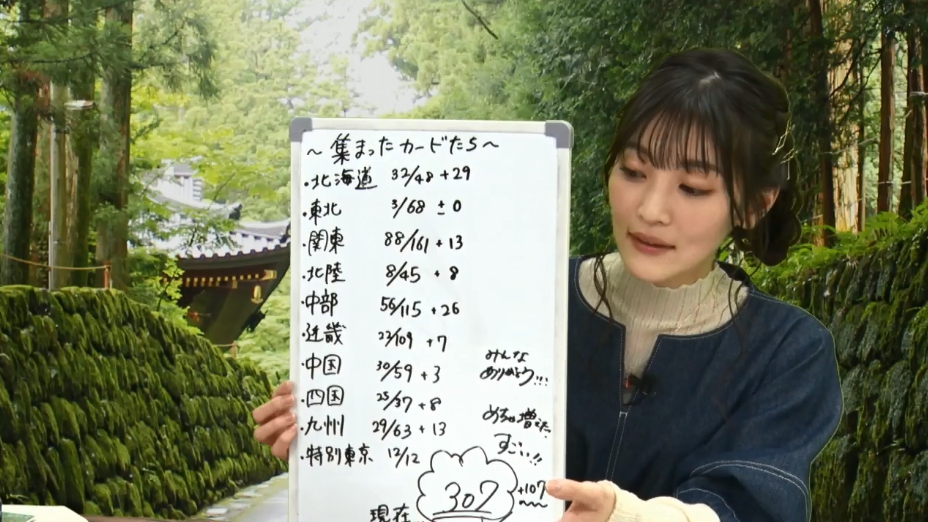 ～集まったカードたち～
・北海道 32/48 +29
・東北 3/68 ±0
・関東 88/161 +13
・北陸 8/45 +8
・中部 56/115 +26
・近畿 23/109 +7
・中国 30/59 +3
・四国 25/37 +8
・九州 29/63 +13
・特別東京 12/12
みんな
ありがとう!!!
めちゃ増えた
すごい!!
現在 307 +107